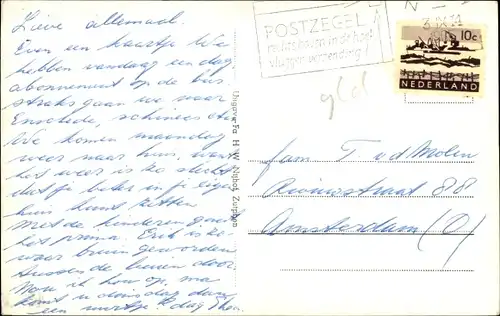 Lieve allemaal.
Even een kaartje We
hebben vandaag een dag
abonnement op de bus
straks gaan we naar
Enschede,
We komen maandag
weer naar huis, want
het weer is zo slecht
dat je beter in je eigen
huis kunt zitten
Met de kinderen gaat
het prima. Erik is
weer bruin geworden
tussen de buien door.
Nou ik hou op, ma
komt u dinsdag dan
een uurtje? dag
Uitgave Fa. H. W. Nijhof, Zutphen
POSTZEGEL
rechts boven in de hoek
vlugger verzending!
10c
NEDERLAND
fam T vd Molen
straat 88
Amsterdam (O)